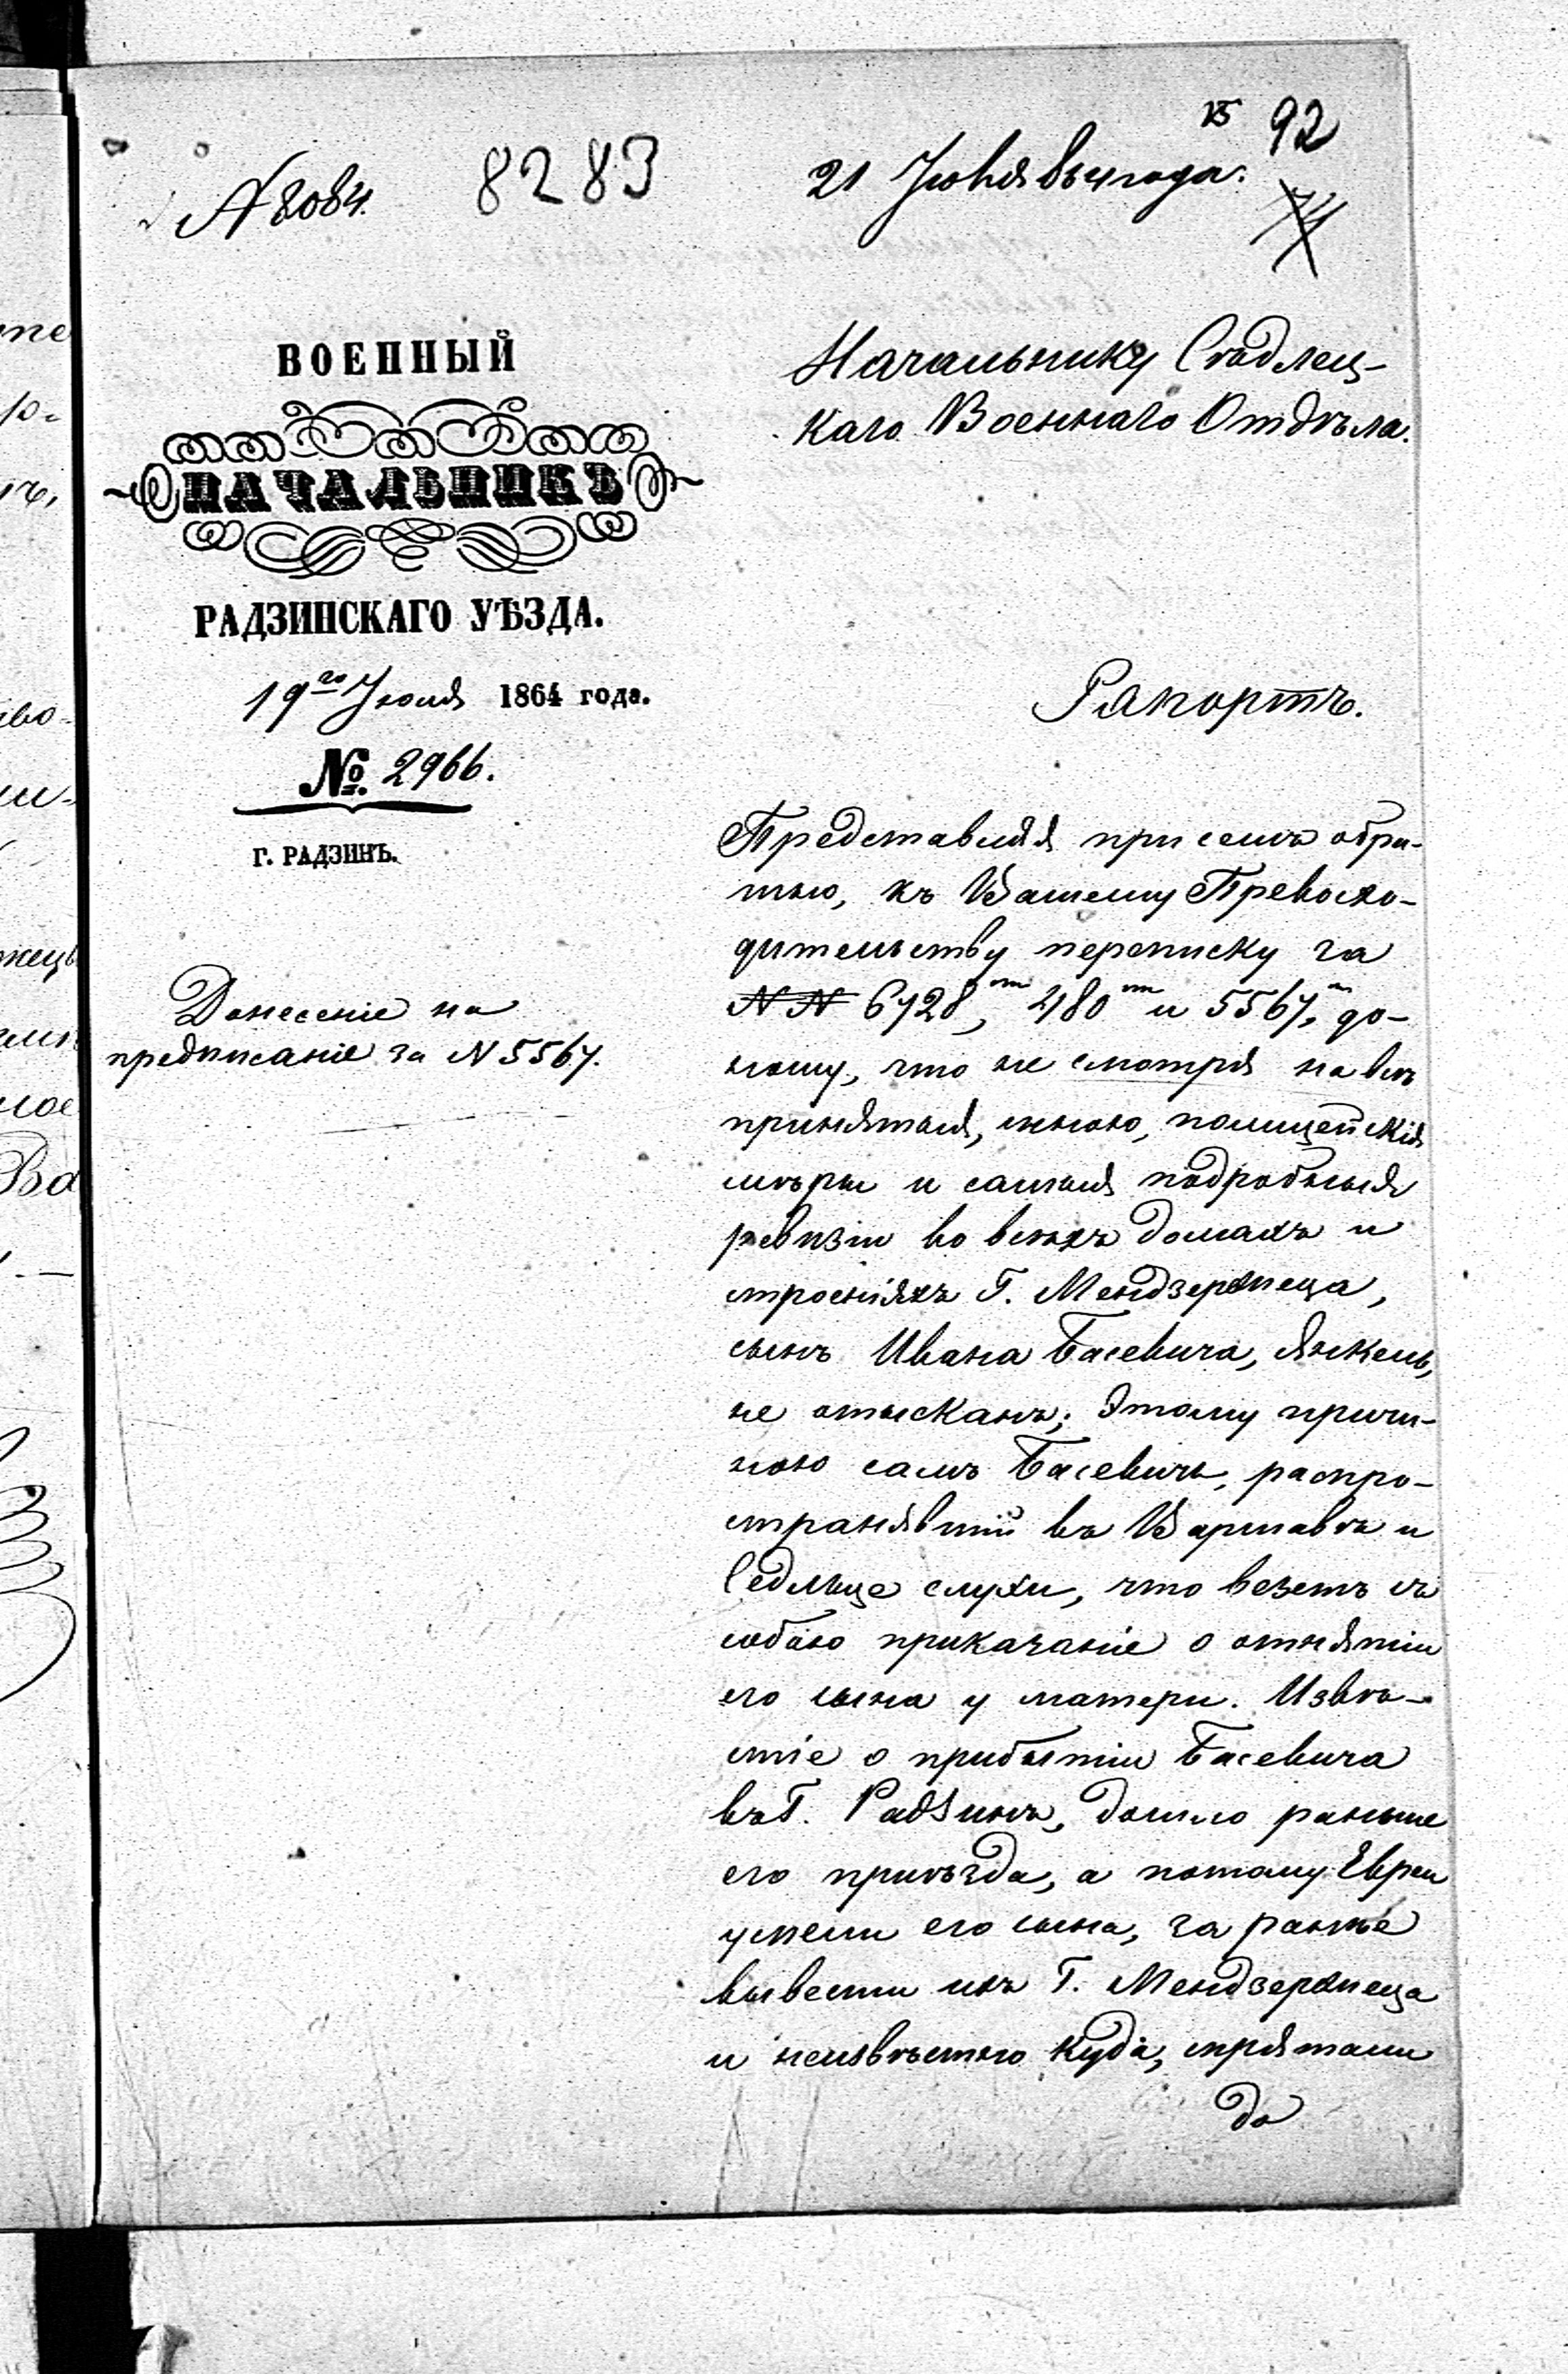 92
№ 8084. 8283 21 Июня 64 года.
ВОЕННЫЙ
НАЧАЛЬНИКЪ
РАДЗИНСКАГО УѢЗДА.
19го Июня 1864 года.
№ 2966.
Г. РАДЗИНЪ.
Донесеніе на
предписаніе за N 5567.
Начальнику Сѣдлец-
каго Военнаго Отдѣла.
Рапортъ.
Представляя при семъ обра-
тно, къ Вашему Превосхо-
дительству переписку за
N N 6728, 480 и 5567, до-
ношу, что не смотря на всѣ
принятыя, мною, полицейскія
мѣры и самыя подробныя
ревизіи во всѣхъ домахъ и
строеніяхъ Г. Мендзержица,
сынъ Ивана Басевича, Янкель,
не отысканъ; Этому причи-
ною самъ Басевичъ, распро-
странявшій въ Варшавѣ и
Седльце слухи, что везетъ съ
собою приказаніе о отнятіи
его сына у матери. Извѣ-
стіе о прибытіи Басевича
въ Г. Радзинъ, дошло раньше
его приѣзда, а потому Евреи
успели его сына, за ранѣе
вывести изъ Г. Мендзержица
и неизвѣстно куда, спрятали
до